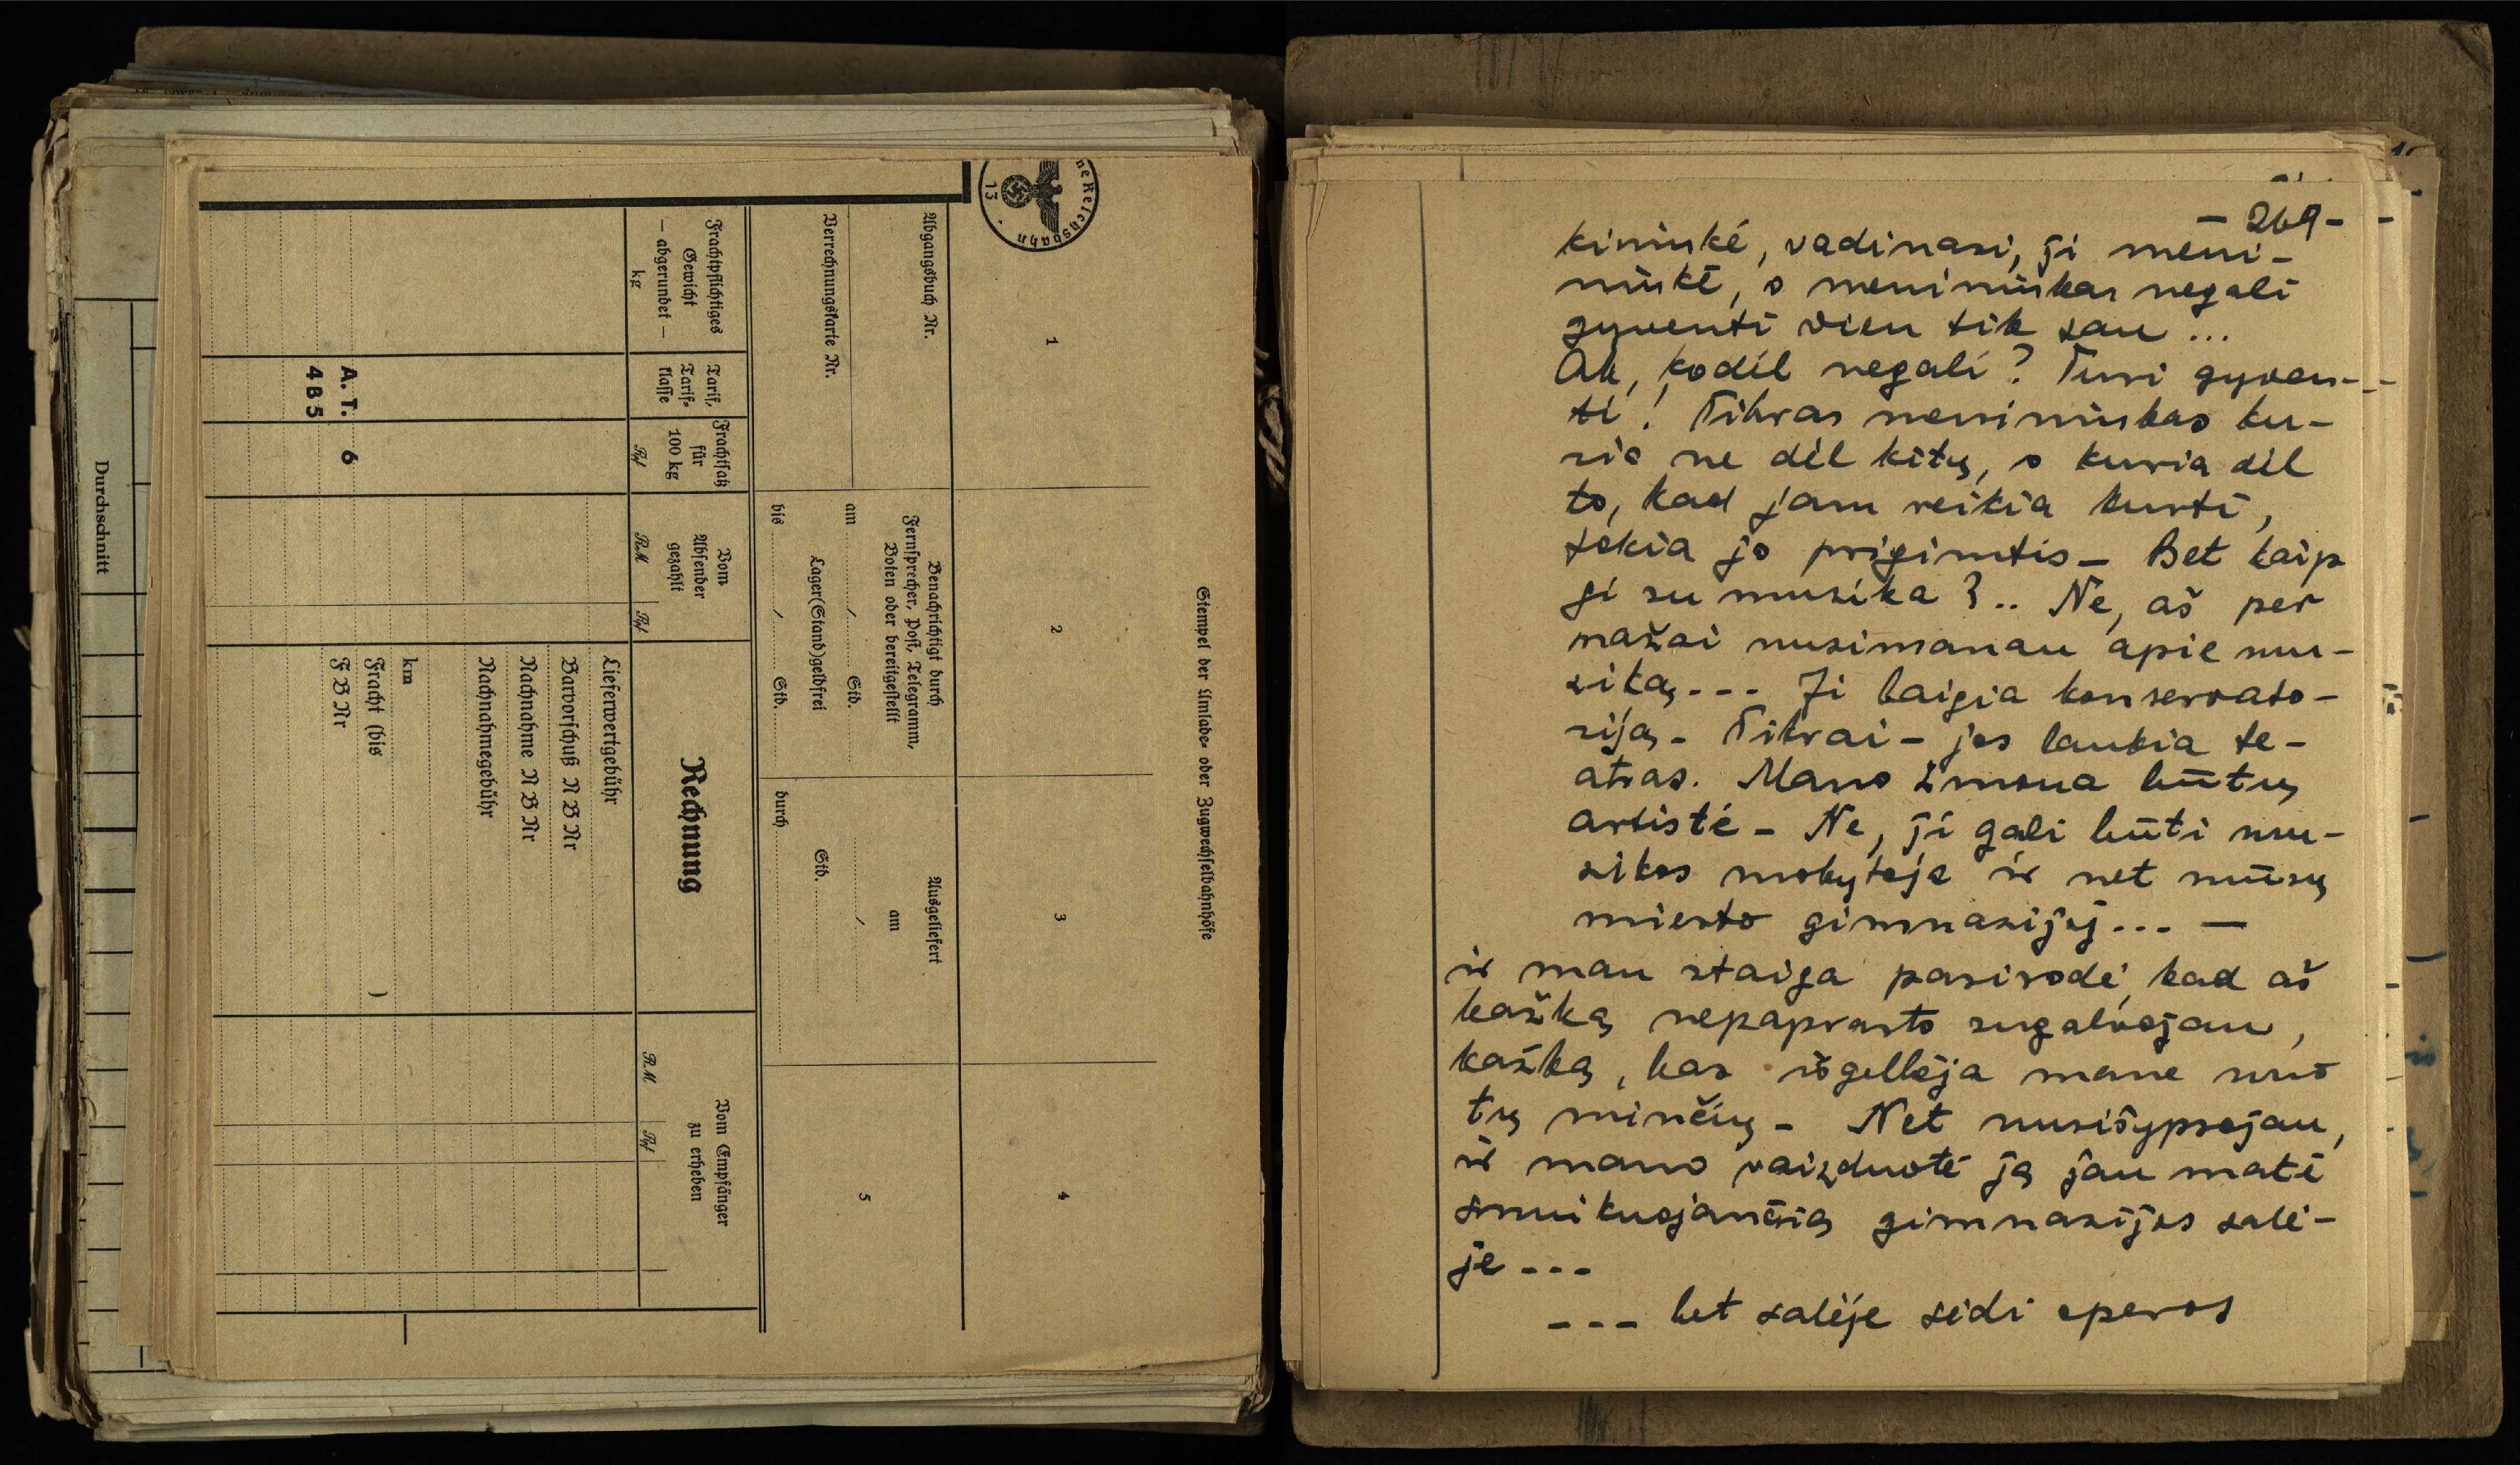 Durchschnitt
ne Reichsbahn
13
Stempel der Umlade- oder Zugwechselbahnhöfe
1
2
3
4
5
Abgangsbuch Nr.
Verrechnungskarte Nr.
Benachrichtigt durch
Fernsprecher, Post, Telegramm,
Boten oder bereitgestellt
am / Std.
Lager(Stand)geldfrei
bis / Std.
Ausgeliefert
am
/
Std.
durch
Frachtpflichtiges
Gewicht
— abgerundet —
kg
Tarif,
Tarif-
klasse
Frachtsatz
für
100 kg
Rpf
Vom
Absender
gezahlt
RM Rpf
Rechnung
Vom Empfänger
zu erheben
RM Rpf
Lieferwertgebühr
Barvorschuß N B Nr
Nachnahme N B Nr
Nachnahmegebühr
km
Fracht (bis )
F B Nr
A. T. 6
4 B 5
- 269 -
kininkė, vadinasi, ji meni-
ninkė, o menininkas negali
gyventi vien tik sau ...
Ak, kodėl negali? Turi gyven-
ti! Tikras menininkas ku-
ria ne dėl kitų, o kuria dėl
to, kad jam reikia kurti,
tokia jo prigimtis - Bet kaip
gi su muzika?.. Ne, aš per
mažai nusimanau apie mu-
ziką --- Ji baigia konservato-
riją - Tikrai - jos laukia te-
atras. Mano žmona būtų
artistė - Ne, ji gali būti mu-
zikos mokytoja ir net mūsų
miesto gimnazijoj... —
ir man staiga pasirodė, kad aš
kažką nepaprasto sugalvojau,
kažką, kas išgelbėja mane nuo
tų minčių - Net nusišypsojau,
ir mano vaizduotė ją jau matė
smuikuojančią gimnazijos salė-
je ---
--- bet salėje sėdi operos